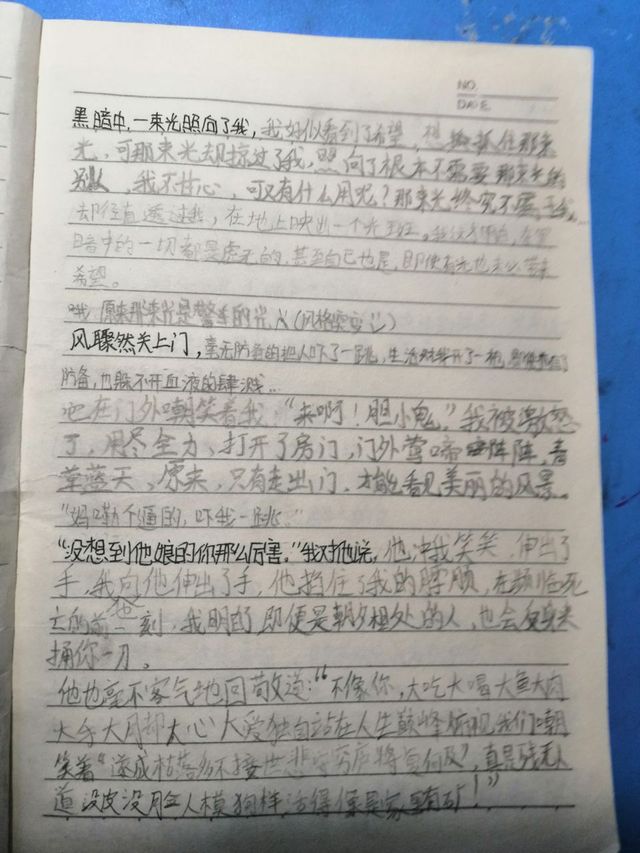 NO.
DATE.
黑暗中，一束光照向了我，我好似看到了希望，想抓住那束
光，可那束光却掠过了我，照向了根本不需要那束光的
别人，我不甘心，可又有什么用呢？那束光终究不属于我...
却径直透过我，在地上映出一个光斑。
暗中的一切都是虚无的，甚至自己也是，即使有光也无法带来
希望。
哦 原来那束光是警车的光（风格突变）
风骤然关上门，毫无防备的把人吓了一跳，生活对我开了一枪，
防备，也躲不开血液的肆溅...
他在门外嘲笑着我，“来啊！胆小鬼。”我被激怒
了，用尽全力，打开了房门，门外莺啼阵阵，青
草蓝天，原来，只有走出门，才能看见美丽的风景。
“妈嘞个逼的，吓我一跳。”
“没想到他娘的你那么厉害。”我对他说，他冲我笑笑，伸出了
手，我向他伸出了手，他掐住了我的脖颈，在濒临死
亡的前一刻，我明白了，即便是朝夕相处的人，也会反身来
捅你一刀。
他也毫不客气地回敬道：“不像你，大吃大喝大鱼大肉
大手大脚却大心大爱独自站在人生巅峰俯视我们嘲
笑着“遂成枯落多不接世悲守穷庐将复何及”，真是残无人
道没皮没脸人模狗样活得像是家里有矿！”